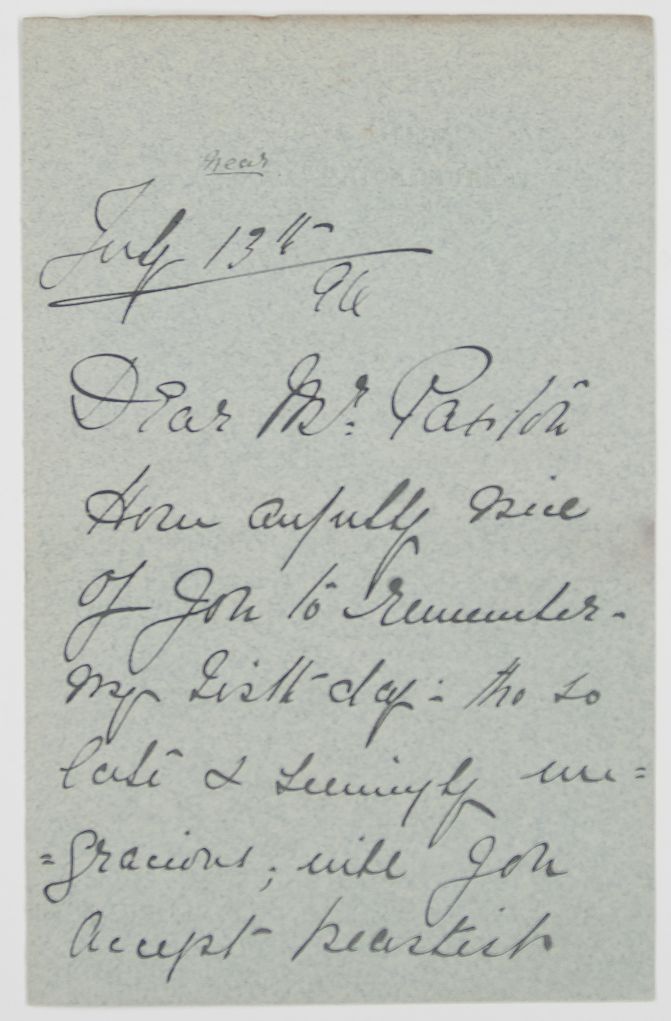 near
July 13th
96
Dear Mr. Paxton
How awfully nice
of you to remember
my birth-day - tho so
late & seemingly un=
=gracious; will you
accept heartiest